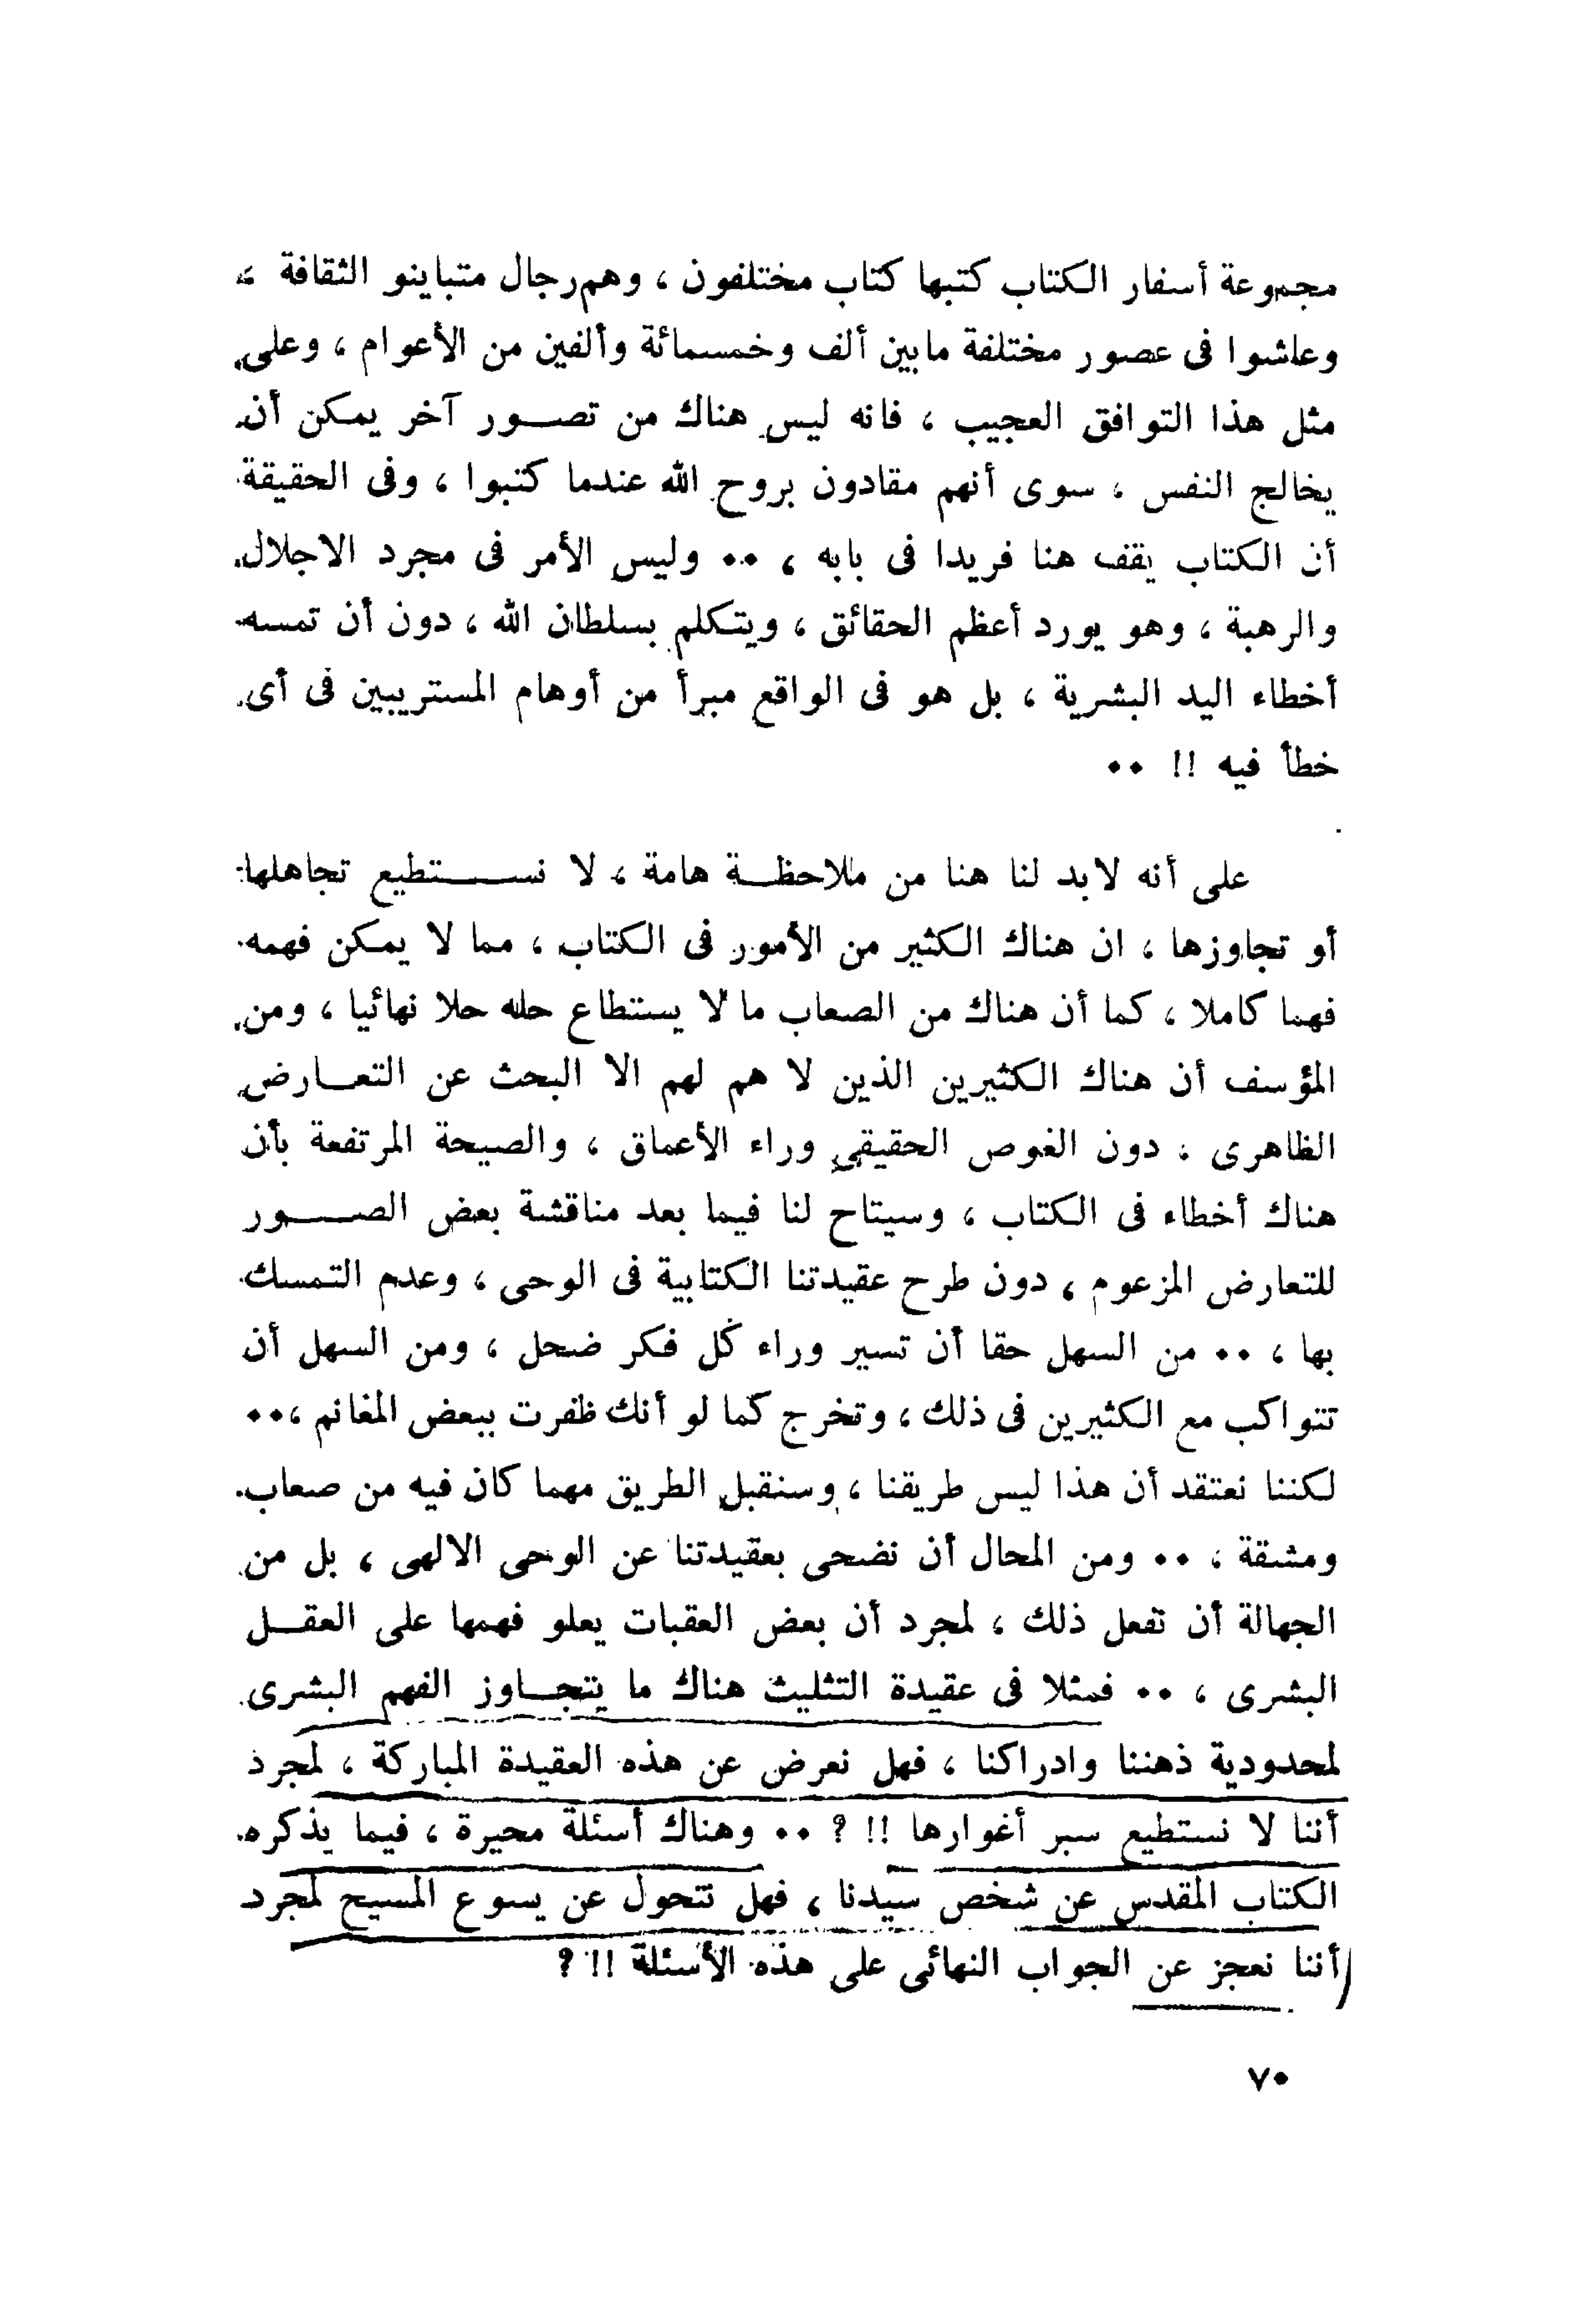 مجموعة أسفار الكتاب كتبها كتاب مختلفون ، وهم رجال متباينو الثقافة ،
وعاشوا فى عصور مختلفة مابين ألف وخمسمائة وألفين من الأعوام ، وعلى
مثل هذا التوافق العجيب ، فانه ليس هناك من تصور آخر يمكن أن
يخالج النفس ، سوى أنهم مقادون بروح الله عندما كتبوا ، وفى الحقيقة
أن الكتاب يقف هنا فريدا فى بابه ، ٠٠ وليس الأمر فى مجرد الاجلال
والرهبة ، وهو يورد أعظم الحقائق ، ويتكلم بسلطان الله ، دون أن تمسه
أخطاء اليد البشرية ، بل هو فى الواقع مبرأ من أوهام المستريبين فى أى
خطأ فيه !! ٠٠
على أنه لابد لنا هنا من ملاحظة هامة ، لا نستطيع تجاهلها
أو تجاوزها ، ان هناك الكثير من الأمور فى الكتاب ، مما لا يمكن فهمه
فهما كاملا ، كما أن هناك من الصعاب ما لا يستطاع حله حلا نهائيا ، ومن
المؤسف أن هناك الكثيرين الذين لا هم لهم الا البحث عن التعارض
الظاهرى ، دون الغوص الحقيقى وراء الأعماق ، والصيحة المرتفعة بأن
هناك أخطاء فى الكتاب ، وسيتاح لنا فيما بعد مناقشة بعض الصور
للتعارض المزعوم ، دون طرح عقيدتنا الكتابية فى الوحى ، وعدم التمسك
بها ، ٠٠ من السهل حقا أن تسير وراء كل فكر ضحل ، ومن السهل أن
تتواكب مع الكثيرين فى ذلك ، وتخرج كما لو أنك ظفرت ببعض المغانم ،٠٠
لكننا نعتقد أن هذا ليس طريقنا ، وسنقبل الطريق مهما كان فيه من صعاب
ومشقة ، ٠٠ ومن المحال أن نضحى بعقيدتنا عن الوحى الالهى ، بل من
الجهالة أن تفعل ذلك ، لمجرد أن بعض العقبات يعلو فهمها على العقل
البشرى ، ٠٠ فمثلا فى عقيدة التثليث هناك ما يتجاوز الفهم البشرى
لمحدودية ذهننا وادراكنا ، فهل نعرض عن هذه العقيدة المباركة ، لمجرد
أننا لا نستطيع سبر أغوارها !! ؟ ٠٠ وهناك أسئلة محيرة ، فيما يذكره
الكتاب المقدس عن شخص سيدنا ، فهل نتحول عن يسوع المسيح لمجرد
أننا نعجز عن الجواب النهائى على هذه الأسئلة !! ؟
٧٠